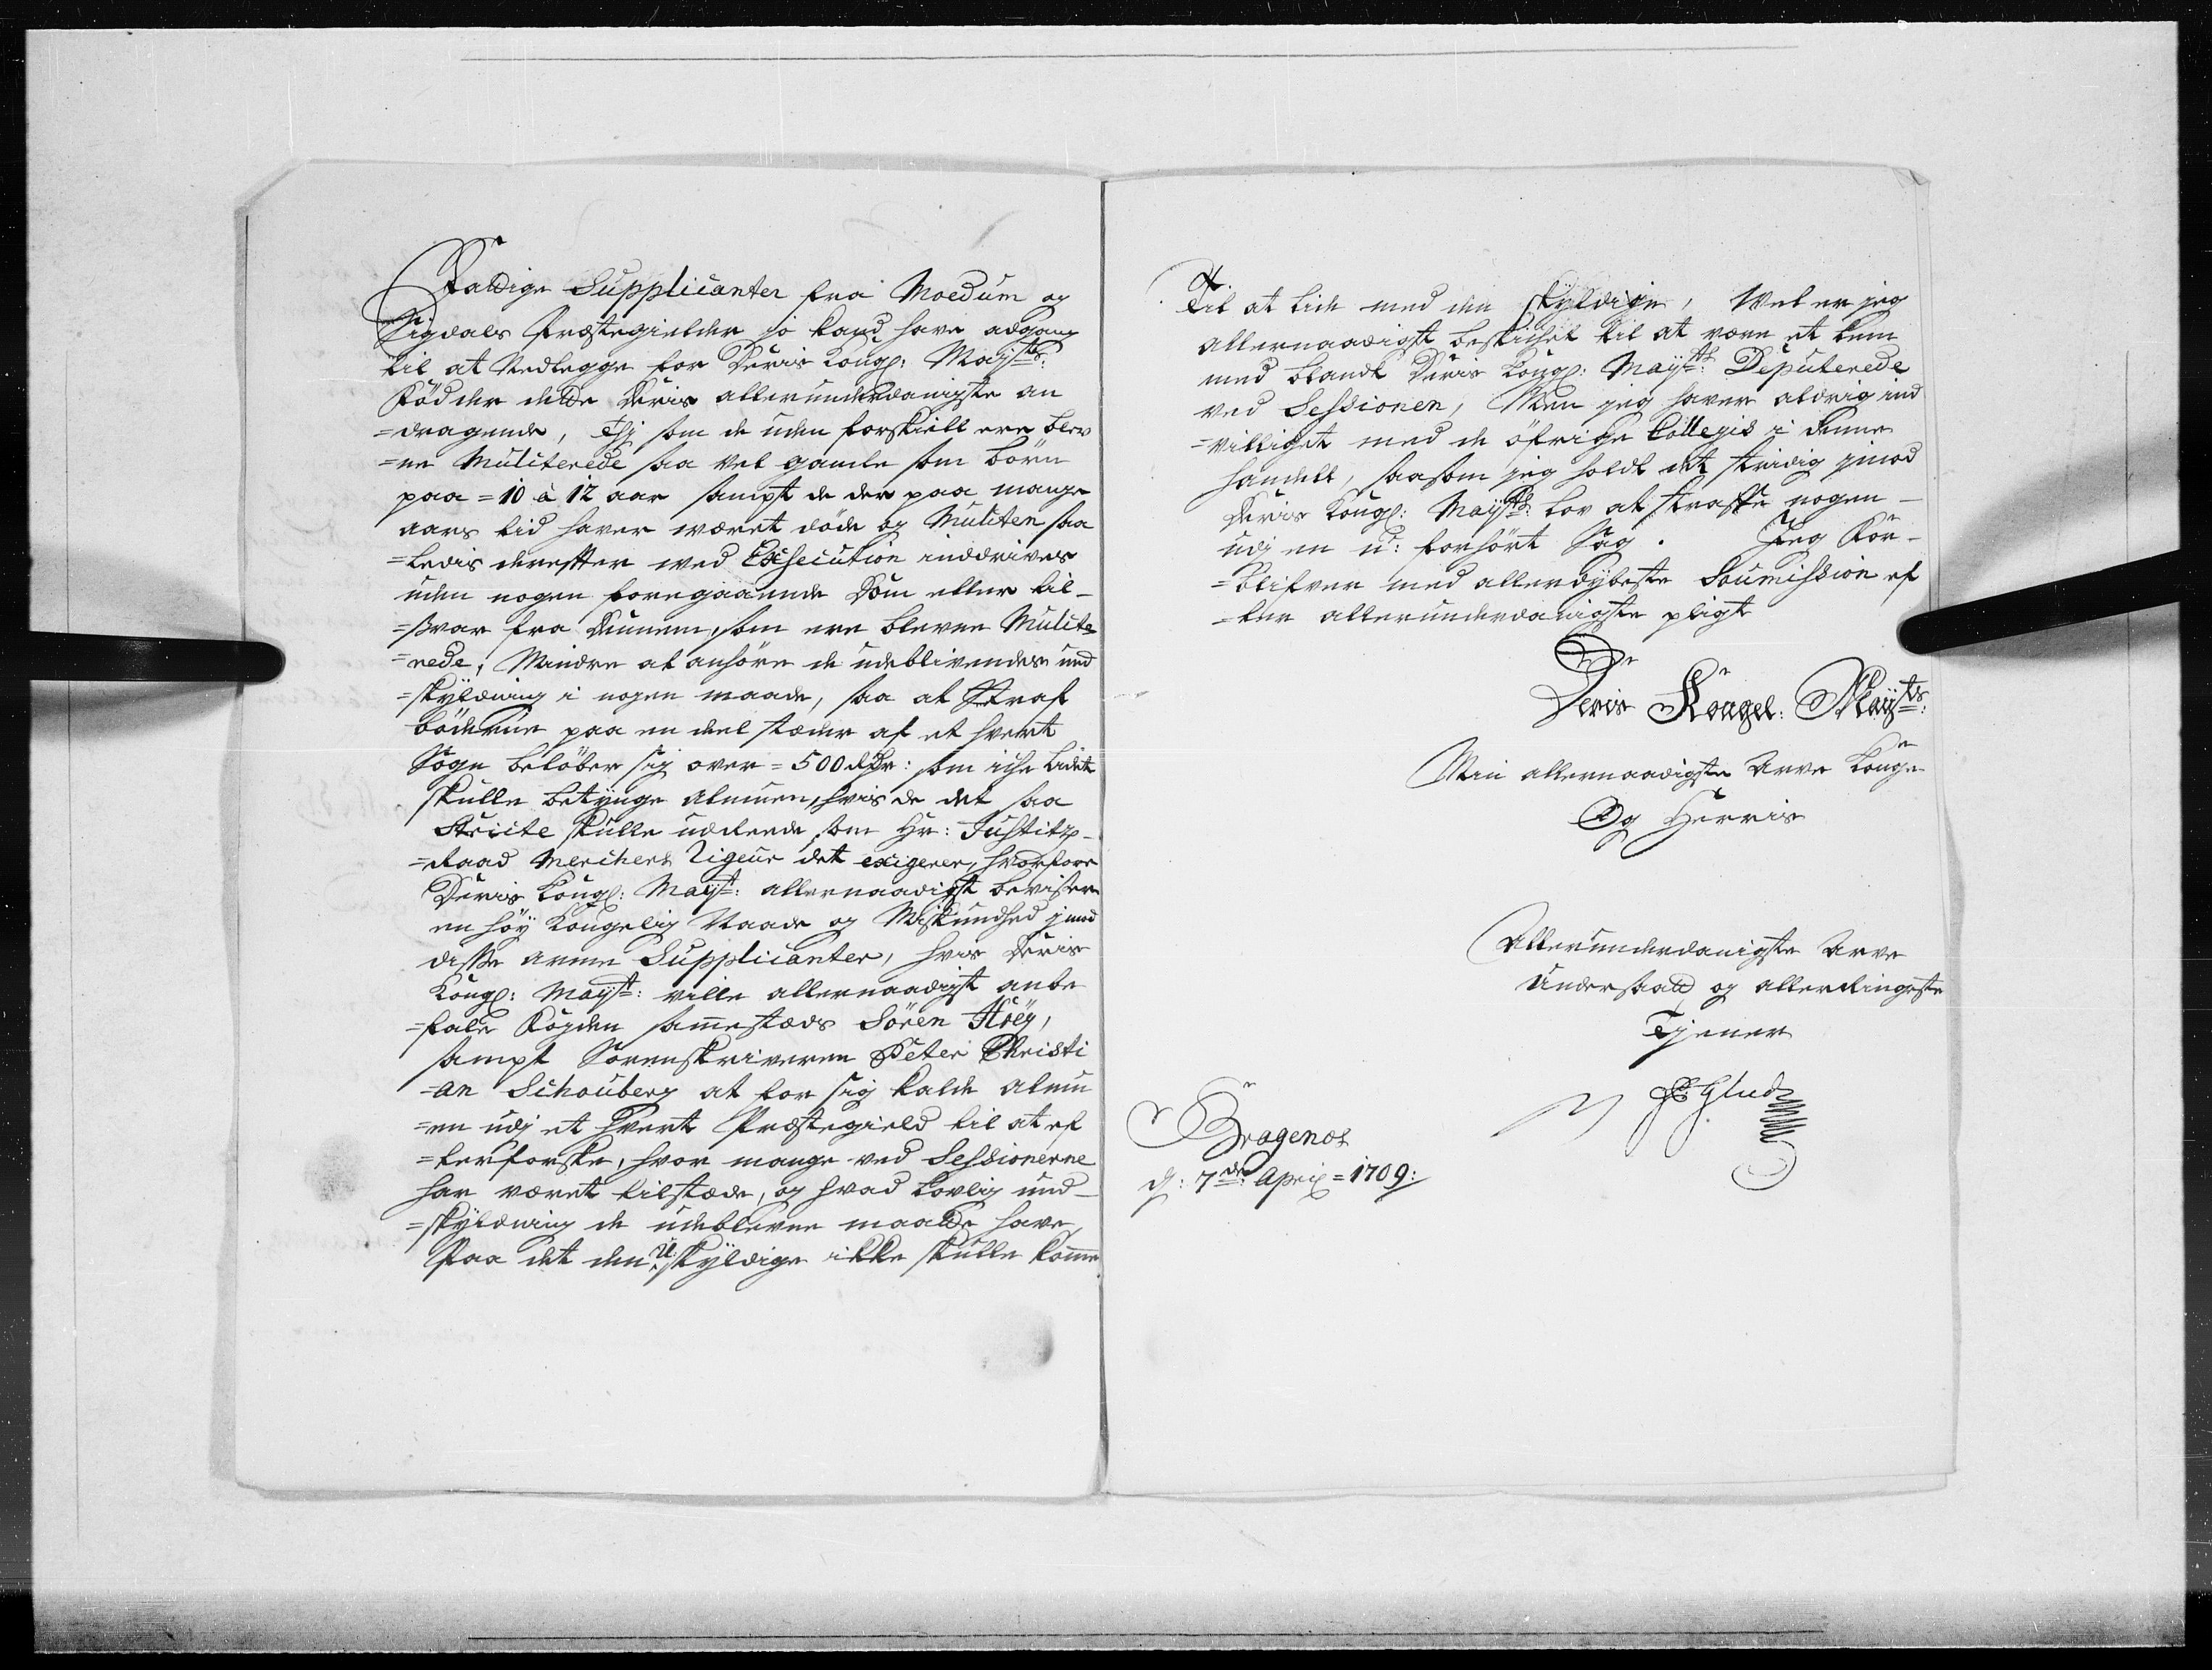 Fattige Supplicanter fra Moedum og
Sigdals Præstegielder jo kand have adgang
til at Nedlegge for Deris Kongl: Mayts:
Födder dette deris allerunderdanigste an
=dragende, Thj som de uden forskiell ere blev
=ne Mulcterede saa vel gamle som börn
paa = 10 à 12 aar sampt de der paa mange
aars tid haver været döde og Mulcten saa
=ledis derefter med Exsecution inddrives
uden nogen foregaaende Dom eller til-
=svar fra dennem, som ere blevne Mulcte
=rede, Mindre at anhöre de udeblivendes und
=skyldning i nogen maade, saa at Straf
böderne paa en deel stæder af et hvert
Sogn belöber sig over = 500 dlr: som iche lidet
skulle betynge almuen, hvis de det saa
Stricte skulle udreede som Hr: Justitz-
=Raad Merchers Rigeur det exigerer, hvorfore
Deris Kongl: Mayt: allernaadigst bevisser
en höy Kongelig Naade og Miskundhed jmod
disse arme Supplicanter, hvis Deris
Kongl: Mayt: ville allernaadigst anbe
=fale Fogden sammestæds Sören
sampt Sorenskriveren Peter Christi
=an Schouberg at for sig kalde almu
=en udj et hvert Præstegield til at ef
=terforske, hvor mange ved Sessionerne
har været tilstæde, og hvad lovlig und-
=skyldning de udeblevne maatte have,
Paa det den U:skyldige ikke skulle komme
Til at lide med den skyldige, Vel er jeg
allernaadigst beskicket til at være et lem
med blandt Deris Kongl: Mayts: Deputerede
ved Sessionen, Men jeg haver aldrig ind
=villiget med de öfrige Collegis i denne
handell, saasom jeg holdt det stridig jmod
Deris Kongl: Mayts: lov at straffe nogen -
udj en u: forhört Sag. Jeg For-
=blifver med allerdybeste Soumission ef
=ter allerunderdanigste pligt
Deris Kongel: Mayts:
Min allernaadigste Arve Konge
Og Herris
Allerunderdanigste Arve
Undersaatt og allerringeste
Tjener
Glud
Bragenes
d: 7de: April = 1709: